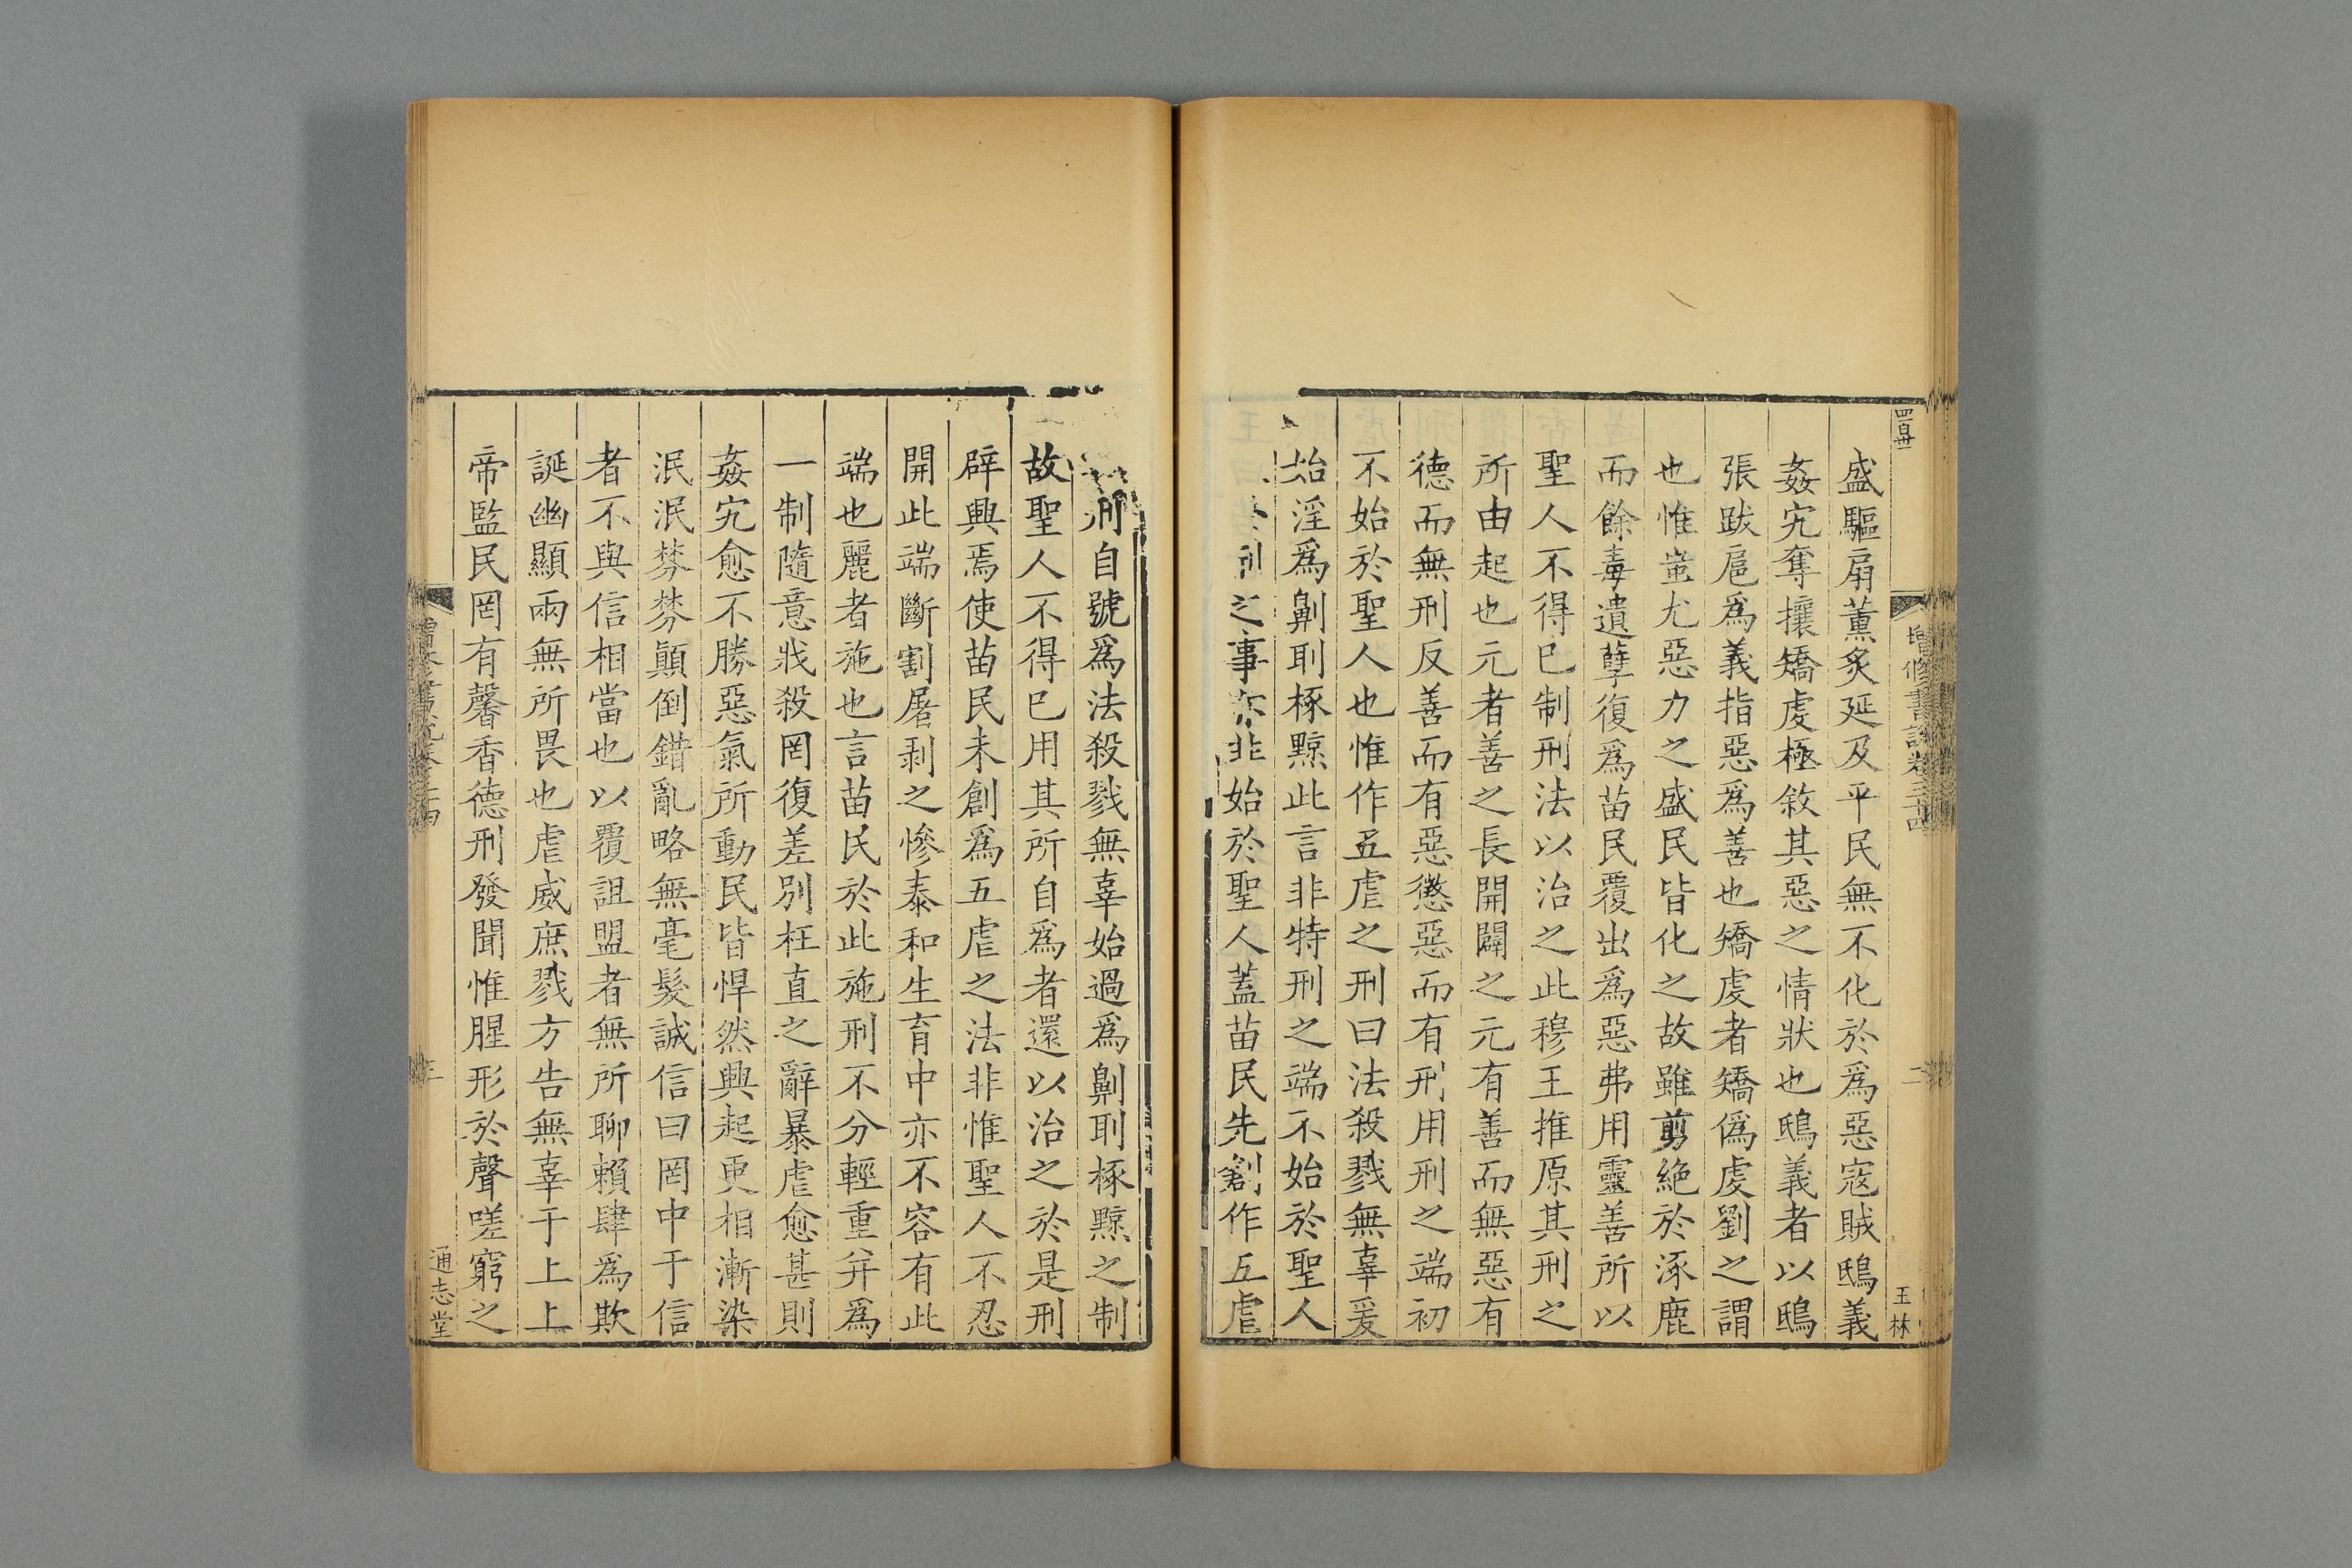 盛驅扇薰炙延及平民無不化於爲惡寇賊鴟義
姦宄奪攘矯虔極敘其惡之情狀也鴟義者以鴟
張跋扈爲義指惡爲善也矯虔者矯僞虔劉之謂
也惟蚩尤惡力之盛民皆化之故雖剪絶於涿鹿
而餘毒遺孽復爲苗民覆出爲惡弗用靈善所以
聖人不得已制刑法以治之此穆王推原其刑之
所由起也元者善之長開闢之元有善而無惡有
德而無刑反善而有惡懲惡而有刑用刑之端初
不始於聖人也惟作五虐之刑曰法殺戮無辜爰
始淫爲劓刵椓黥此言非特刑之端不始於聖人
刑之事亦非始於聖人蓋苗民先創作五虐
刑自號爲法殺戮無辜始過爲劓刵椓黥之制
故聖人不得已用其所自爲者還以治之於是刑
辟興焉使苗民未創爲五虐之法非惟聖人不忍
開此端斷割屠剥之慘泰和生育中亦不容有此
端也麗者施也言苗民於此施刑不分輕重并爲
一制隨意戕殺罔復差别枉直之辭暴虐愈甚則
姦宄愈不勝惡氣所動民皆悍然興起更相漸染
泯泯棼棼顛倒錯亂略無毫髮誠信曰罔中于信
者不與信相當也以覆詛盟者無所聊賴肆爲欺
誕幽顯兩無所畏也虐威庶戮方告無辜于上上
帝監民罔有馨香德刑發聞惟腥形於聲嗟窮之
增修書説卷三十四
二
玉林
三
通志堂